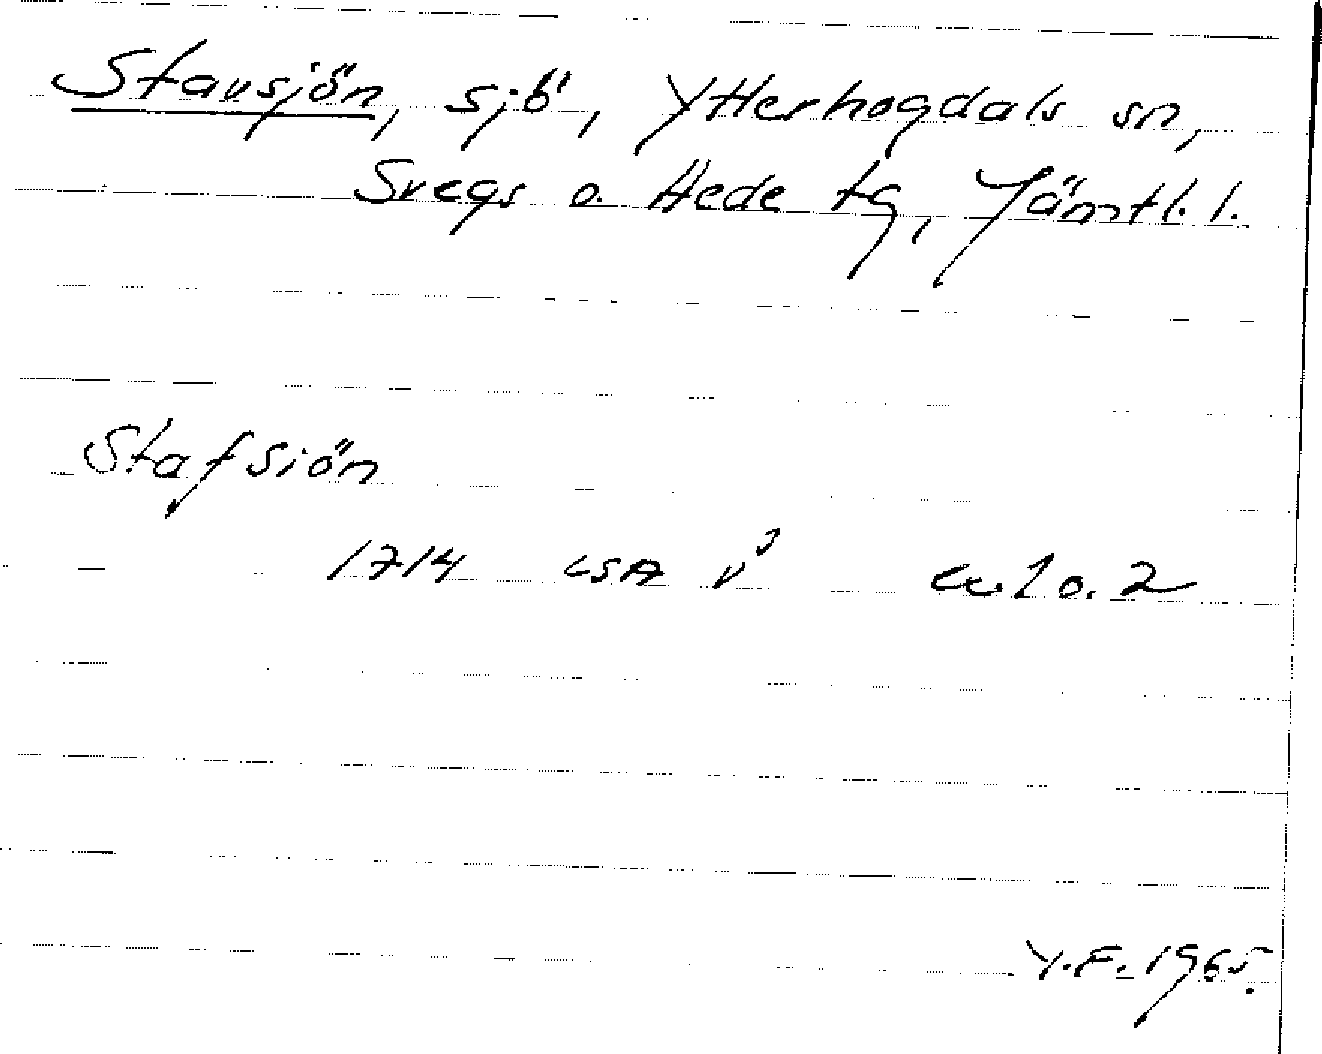 Stavsjön, sjö, Ytterhogdals sn,
Svegs o. Hede tg, Jämtl. l.
Stafsiön
1714 LSA V³ av. 1 o. 2
Y.F. 1965.